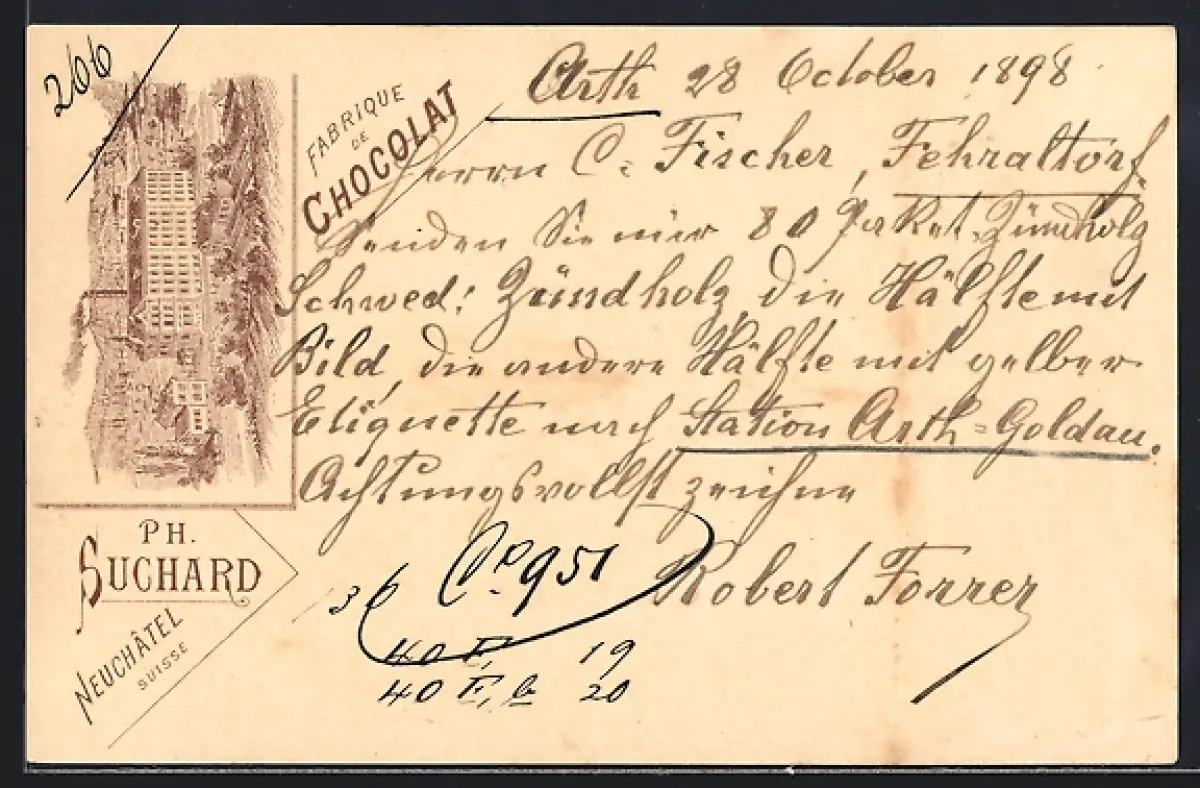 266
FABRIQUE
DE
CHOCOLAT
Arth 28 October 1898.
Herrn C. Fischer, Fehraltorf.
Senden Sie mir 80 Paket Zündholz
Schwed: Zündholz, die Hälfte mit
Bild, die andere Hälfte mit gelber
Etiquette nach Station Arth-Goldau.
Achtungsvollst zeichne
Robert Forrer
PH.
SUCHARD
NEUCHÂTEL
SUISSE
36 951
40 E, 19
40 E, b 20